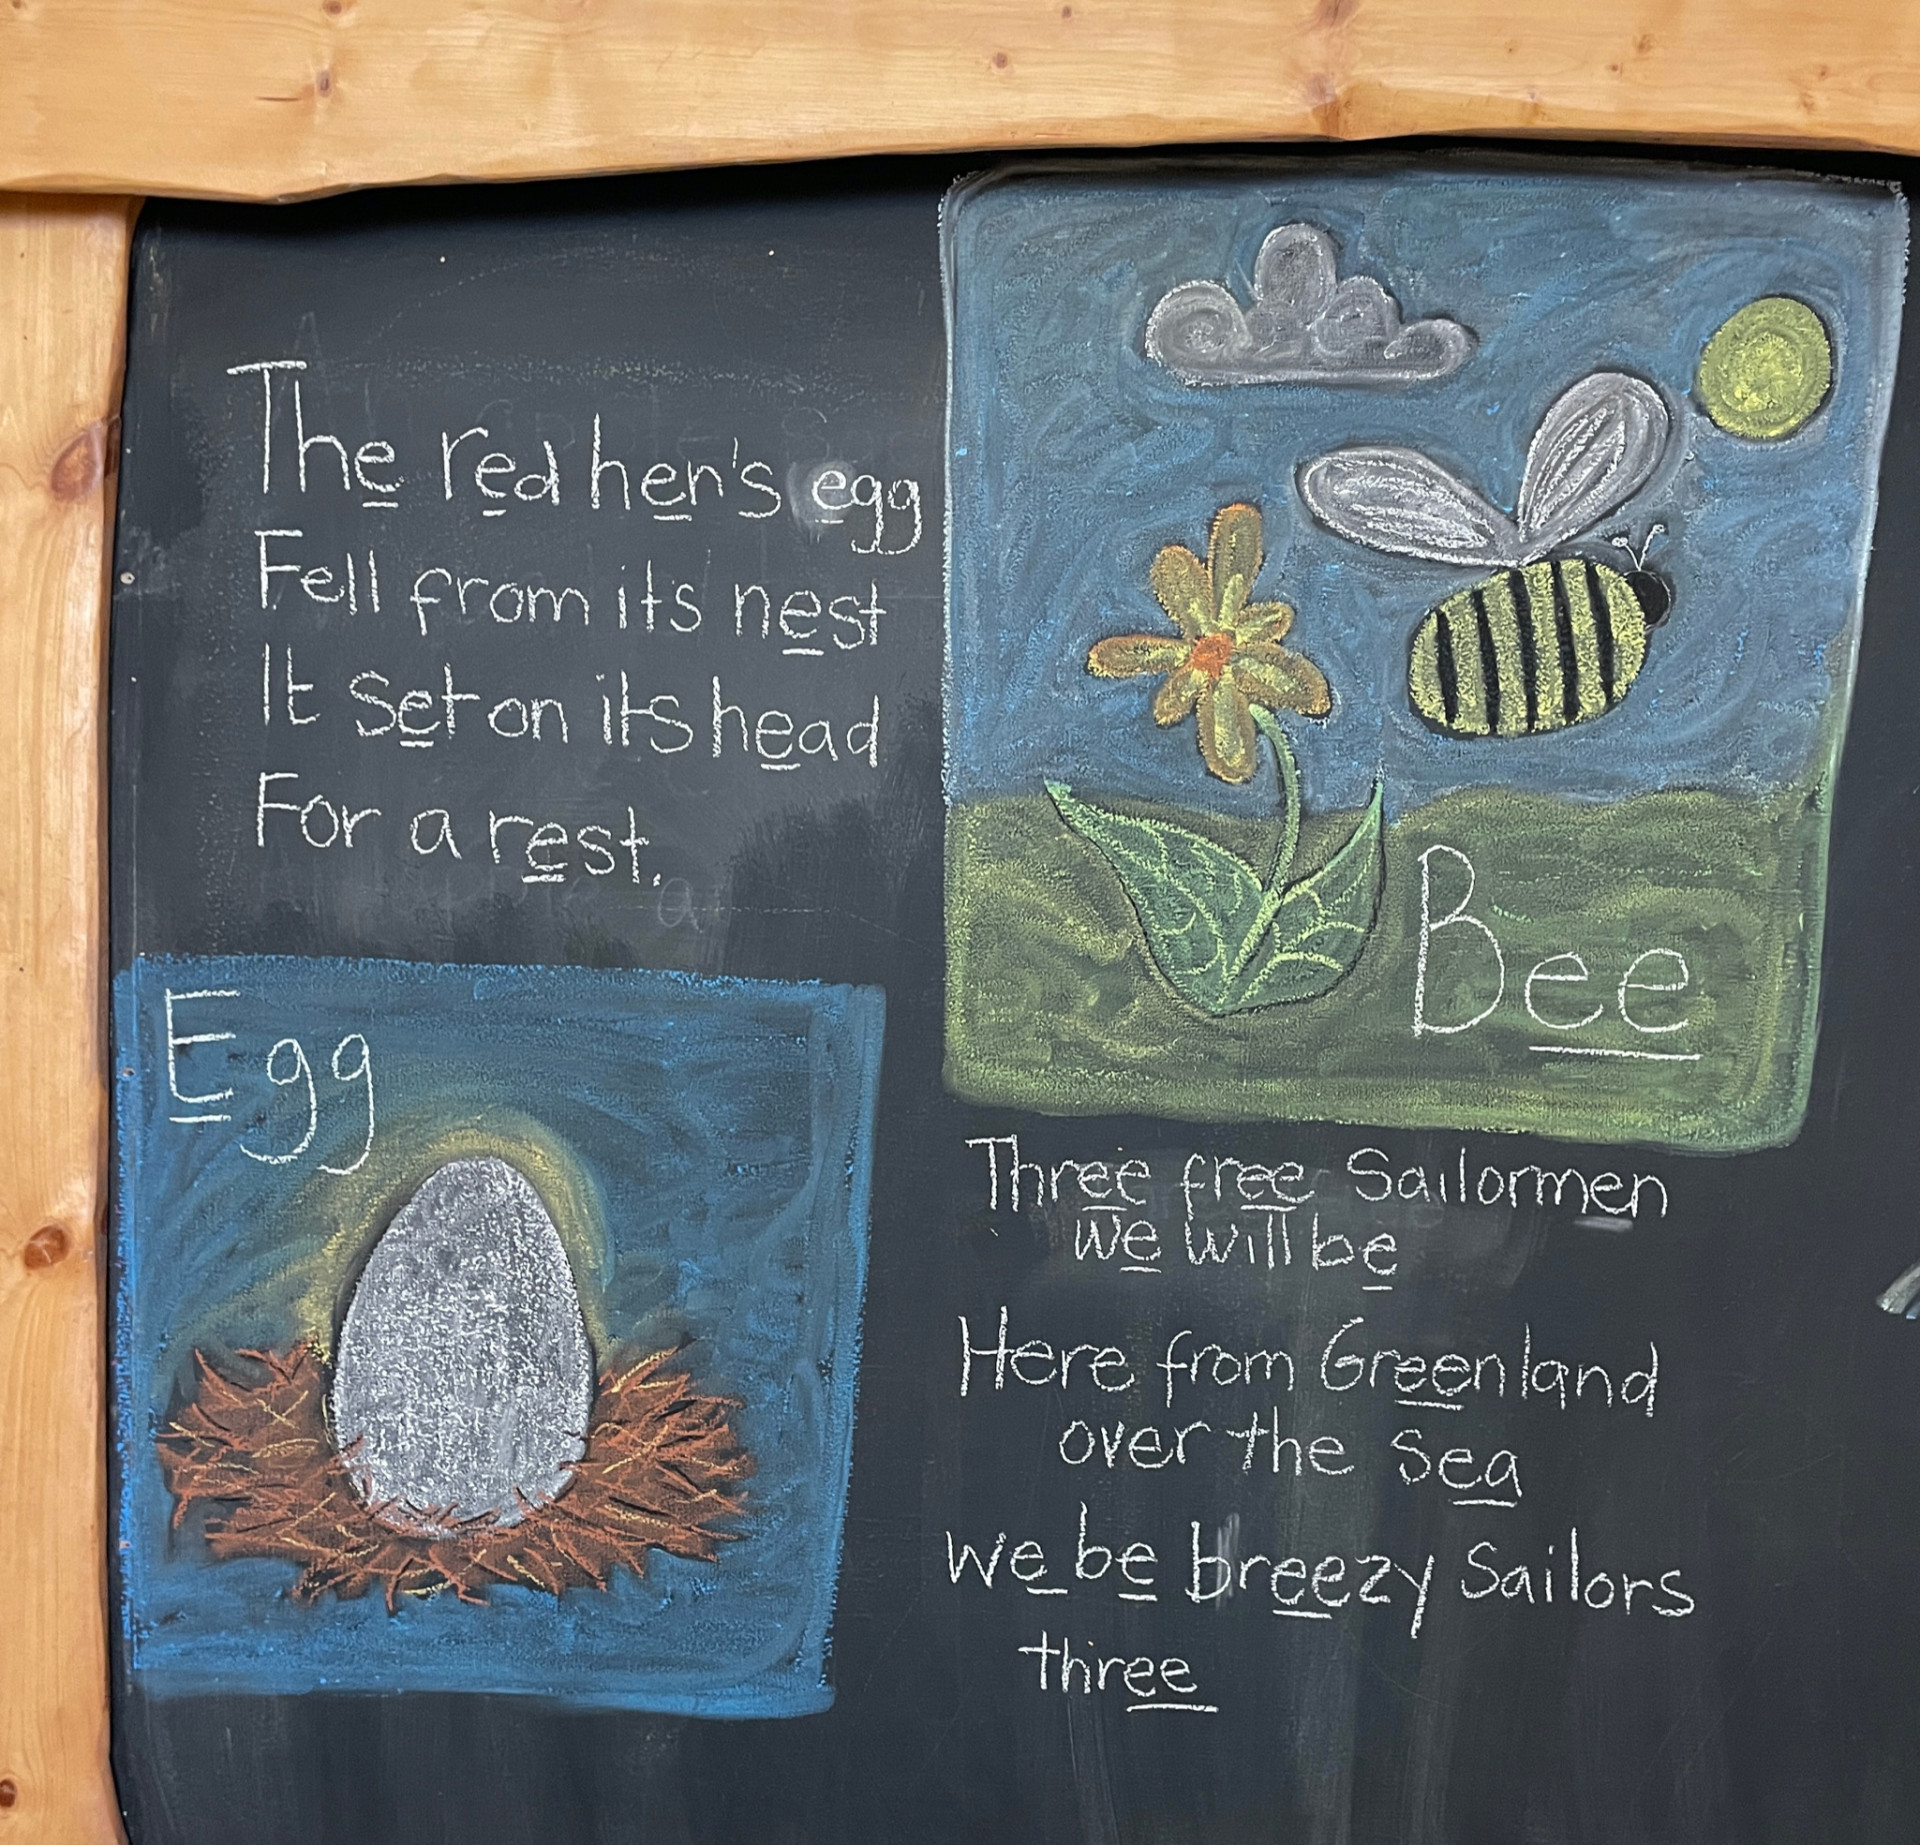 The red hen's egg
Fell from its nest
It set on its head
For a rest.
Egg
Bee
Three free Sailormen
we will be
Here from Greenland
over the Sea
we be breezy Sailors
three